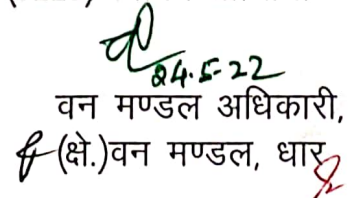 24.5-22
वन मण्डल अधिकारी,
(क्षे.)वन मण्डल, धार